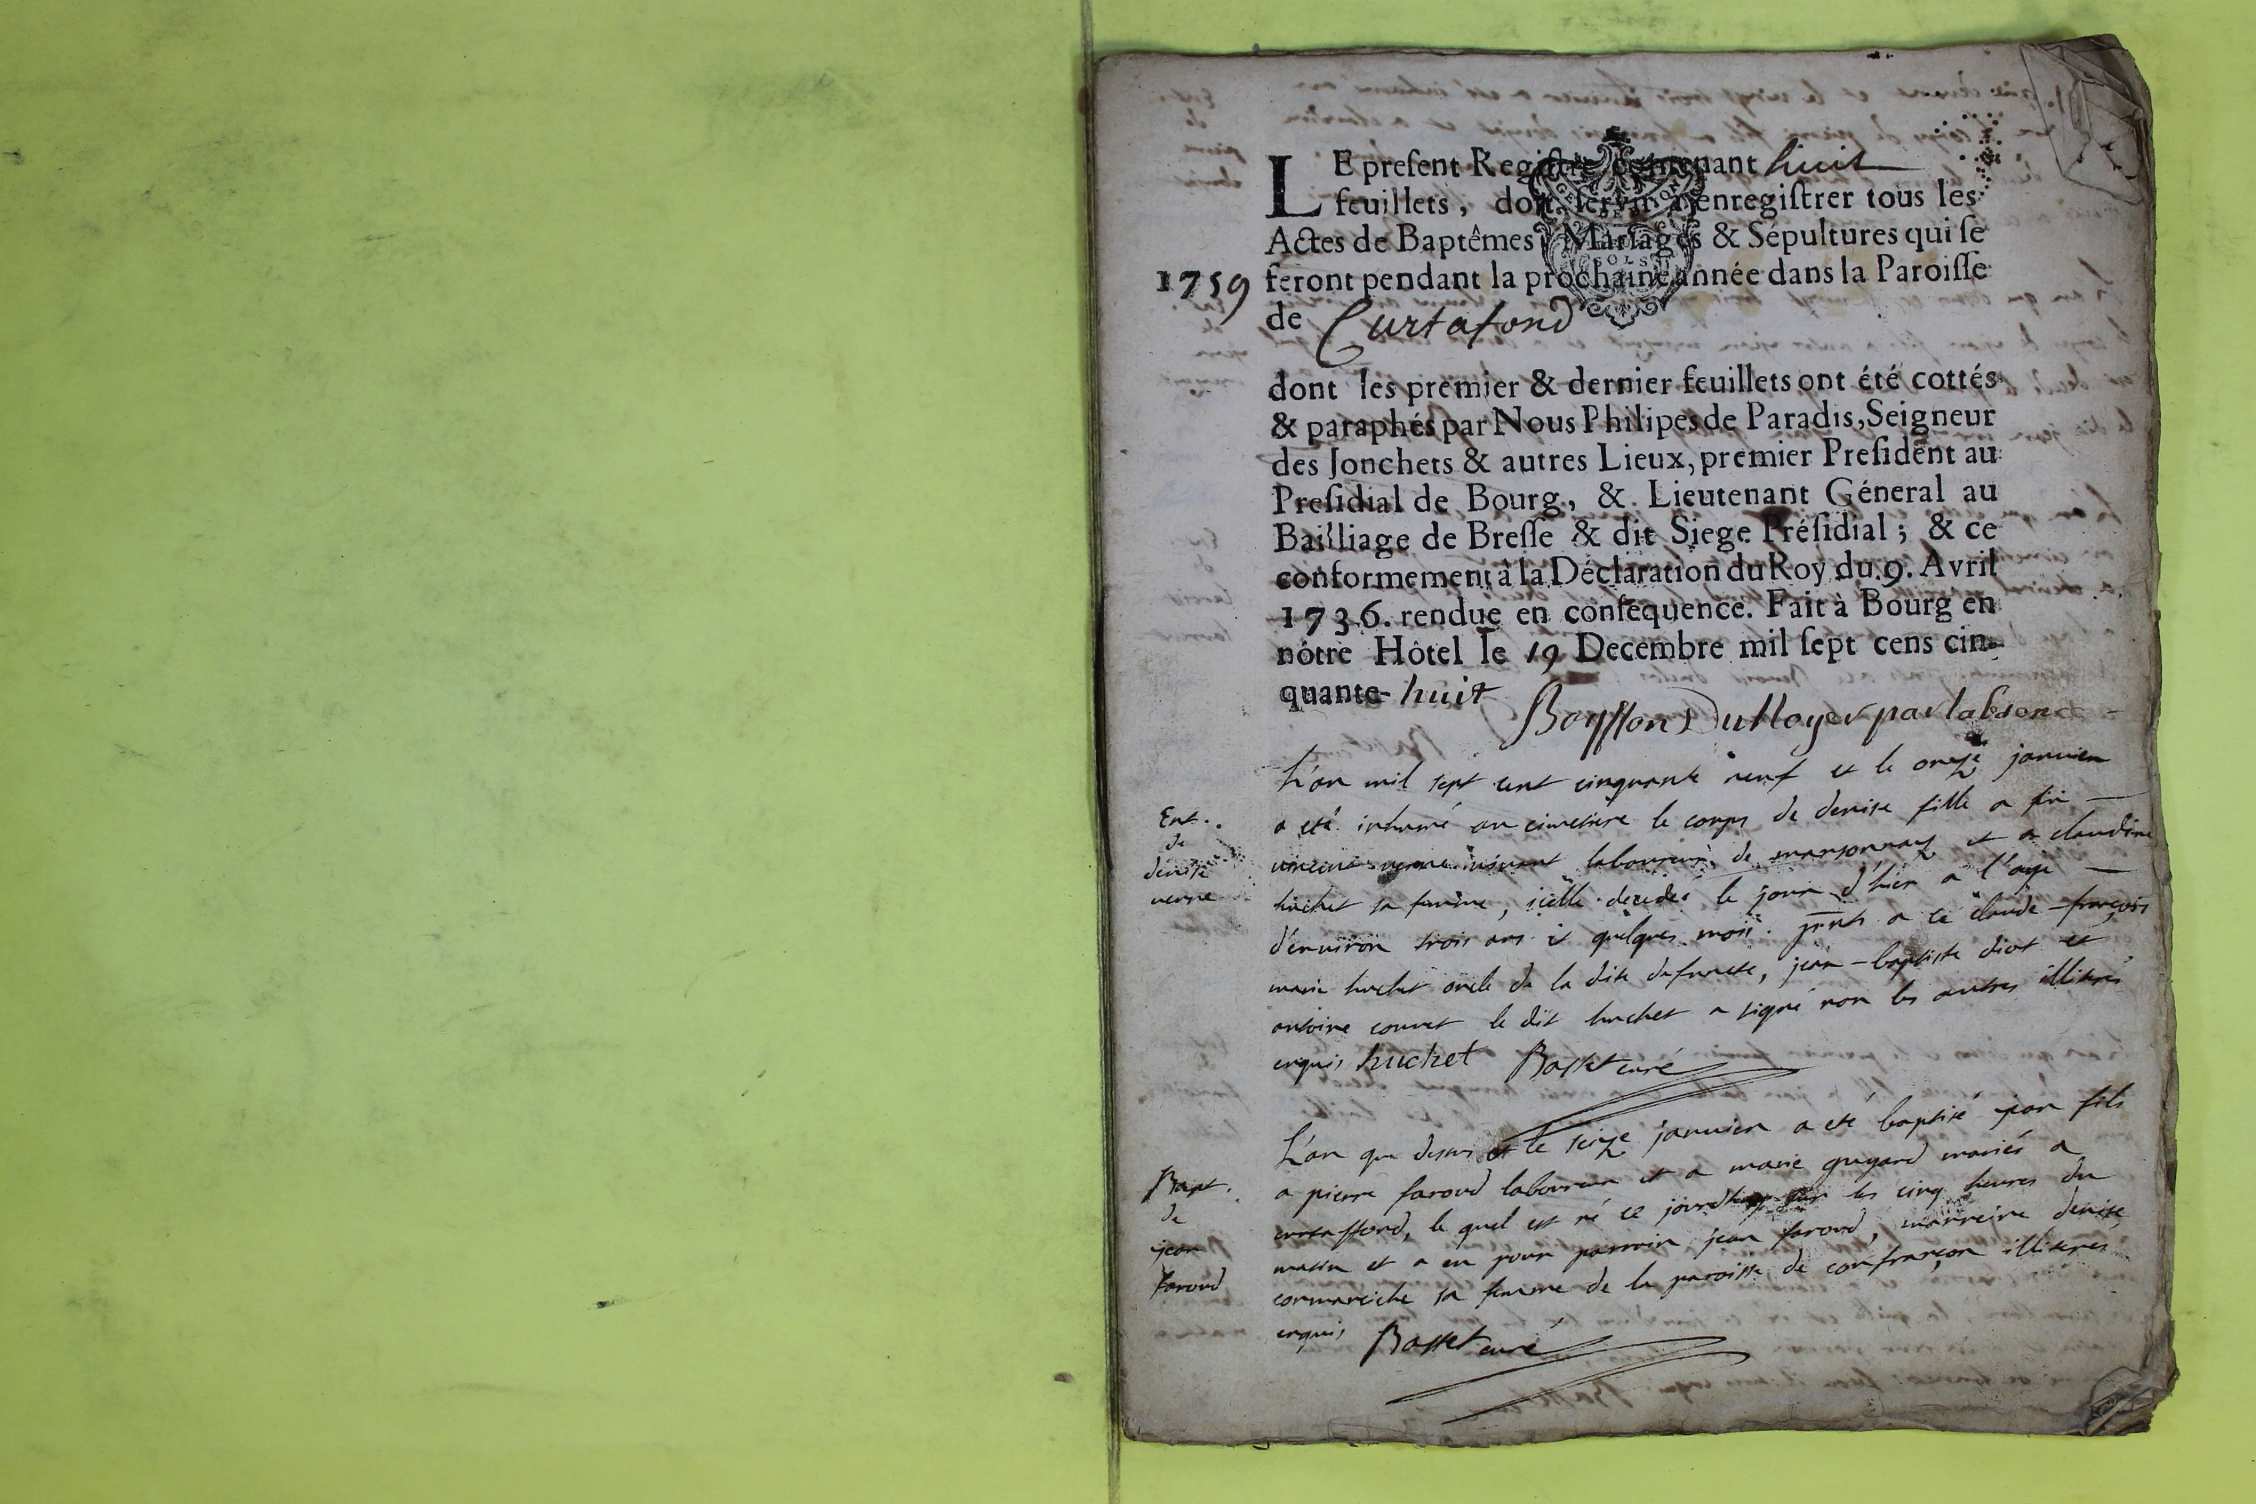 LE preſent Regiſtre contenant huit
feuillets, doit ſervir à enregiſtrer tous les
Actes de Baptêmes, Mariages & Sépultures qui ſe
1759 feront pendant la prochaine année dans la Paroiſſe
de Curtafond
dont les premier & dernier feuillets ont été cottés
& paraphés par Nous Philipes de Paradis, Seigneur
des Jonchets & autres Lieux, premier Preſident au
Preſidial de Bourg, & Lieutenant Géneral au
Bailliage de Breſſe & dit Siege Préſidial ; & ce
conformement à la Déclaration du Roy du 9. Avril
1736. rendue en conſequence. Fait à Bourg en
nôtre Hôtel le 19 Decembre mil ſept cens cin-
quante- huit
par labsence
L'an mil sept cent cinquante neuf et le onze janvier
a eté inhumé au cimetière le corps de denise fille a feu
Ent.
de
denise
verne
vincent verne vivant laboureur de marsonnas et a claudine
huchet sa femme, icelle decedeé le jour d'hier a l'age
d'environ trois ans et quelques mois. pnts a ce claude-françois
marie huchet oncle de la dite defuncte, jean-baptiste diot et
antoine couvet le dit huchet a signé non les autres illiterés
enquis huchet Basset curé
L'an que dessus et le seize janvier a eté baptisé jean fils
Bapt.
de
jean
faroud
a pierre faroud laboureur et a marie guyard mariés a
curtaffond, le quel est né ce jourdhuy sur les cinq heures du
matin et a eu pour parrain jean faroud, marreine denise
cormareche sa femme de la paroisse de confrançon illiterés
enquis Basset curé